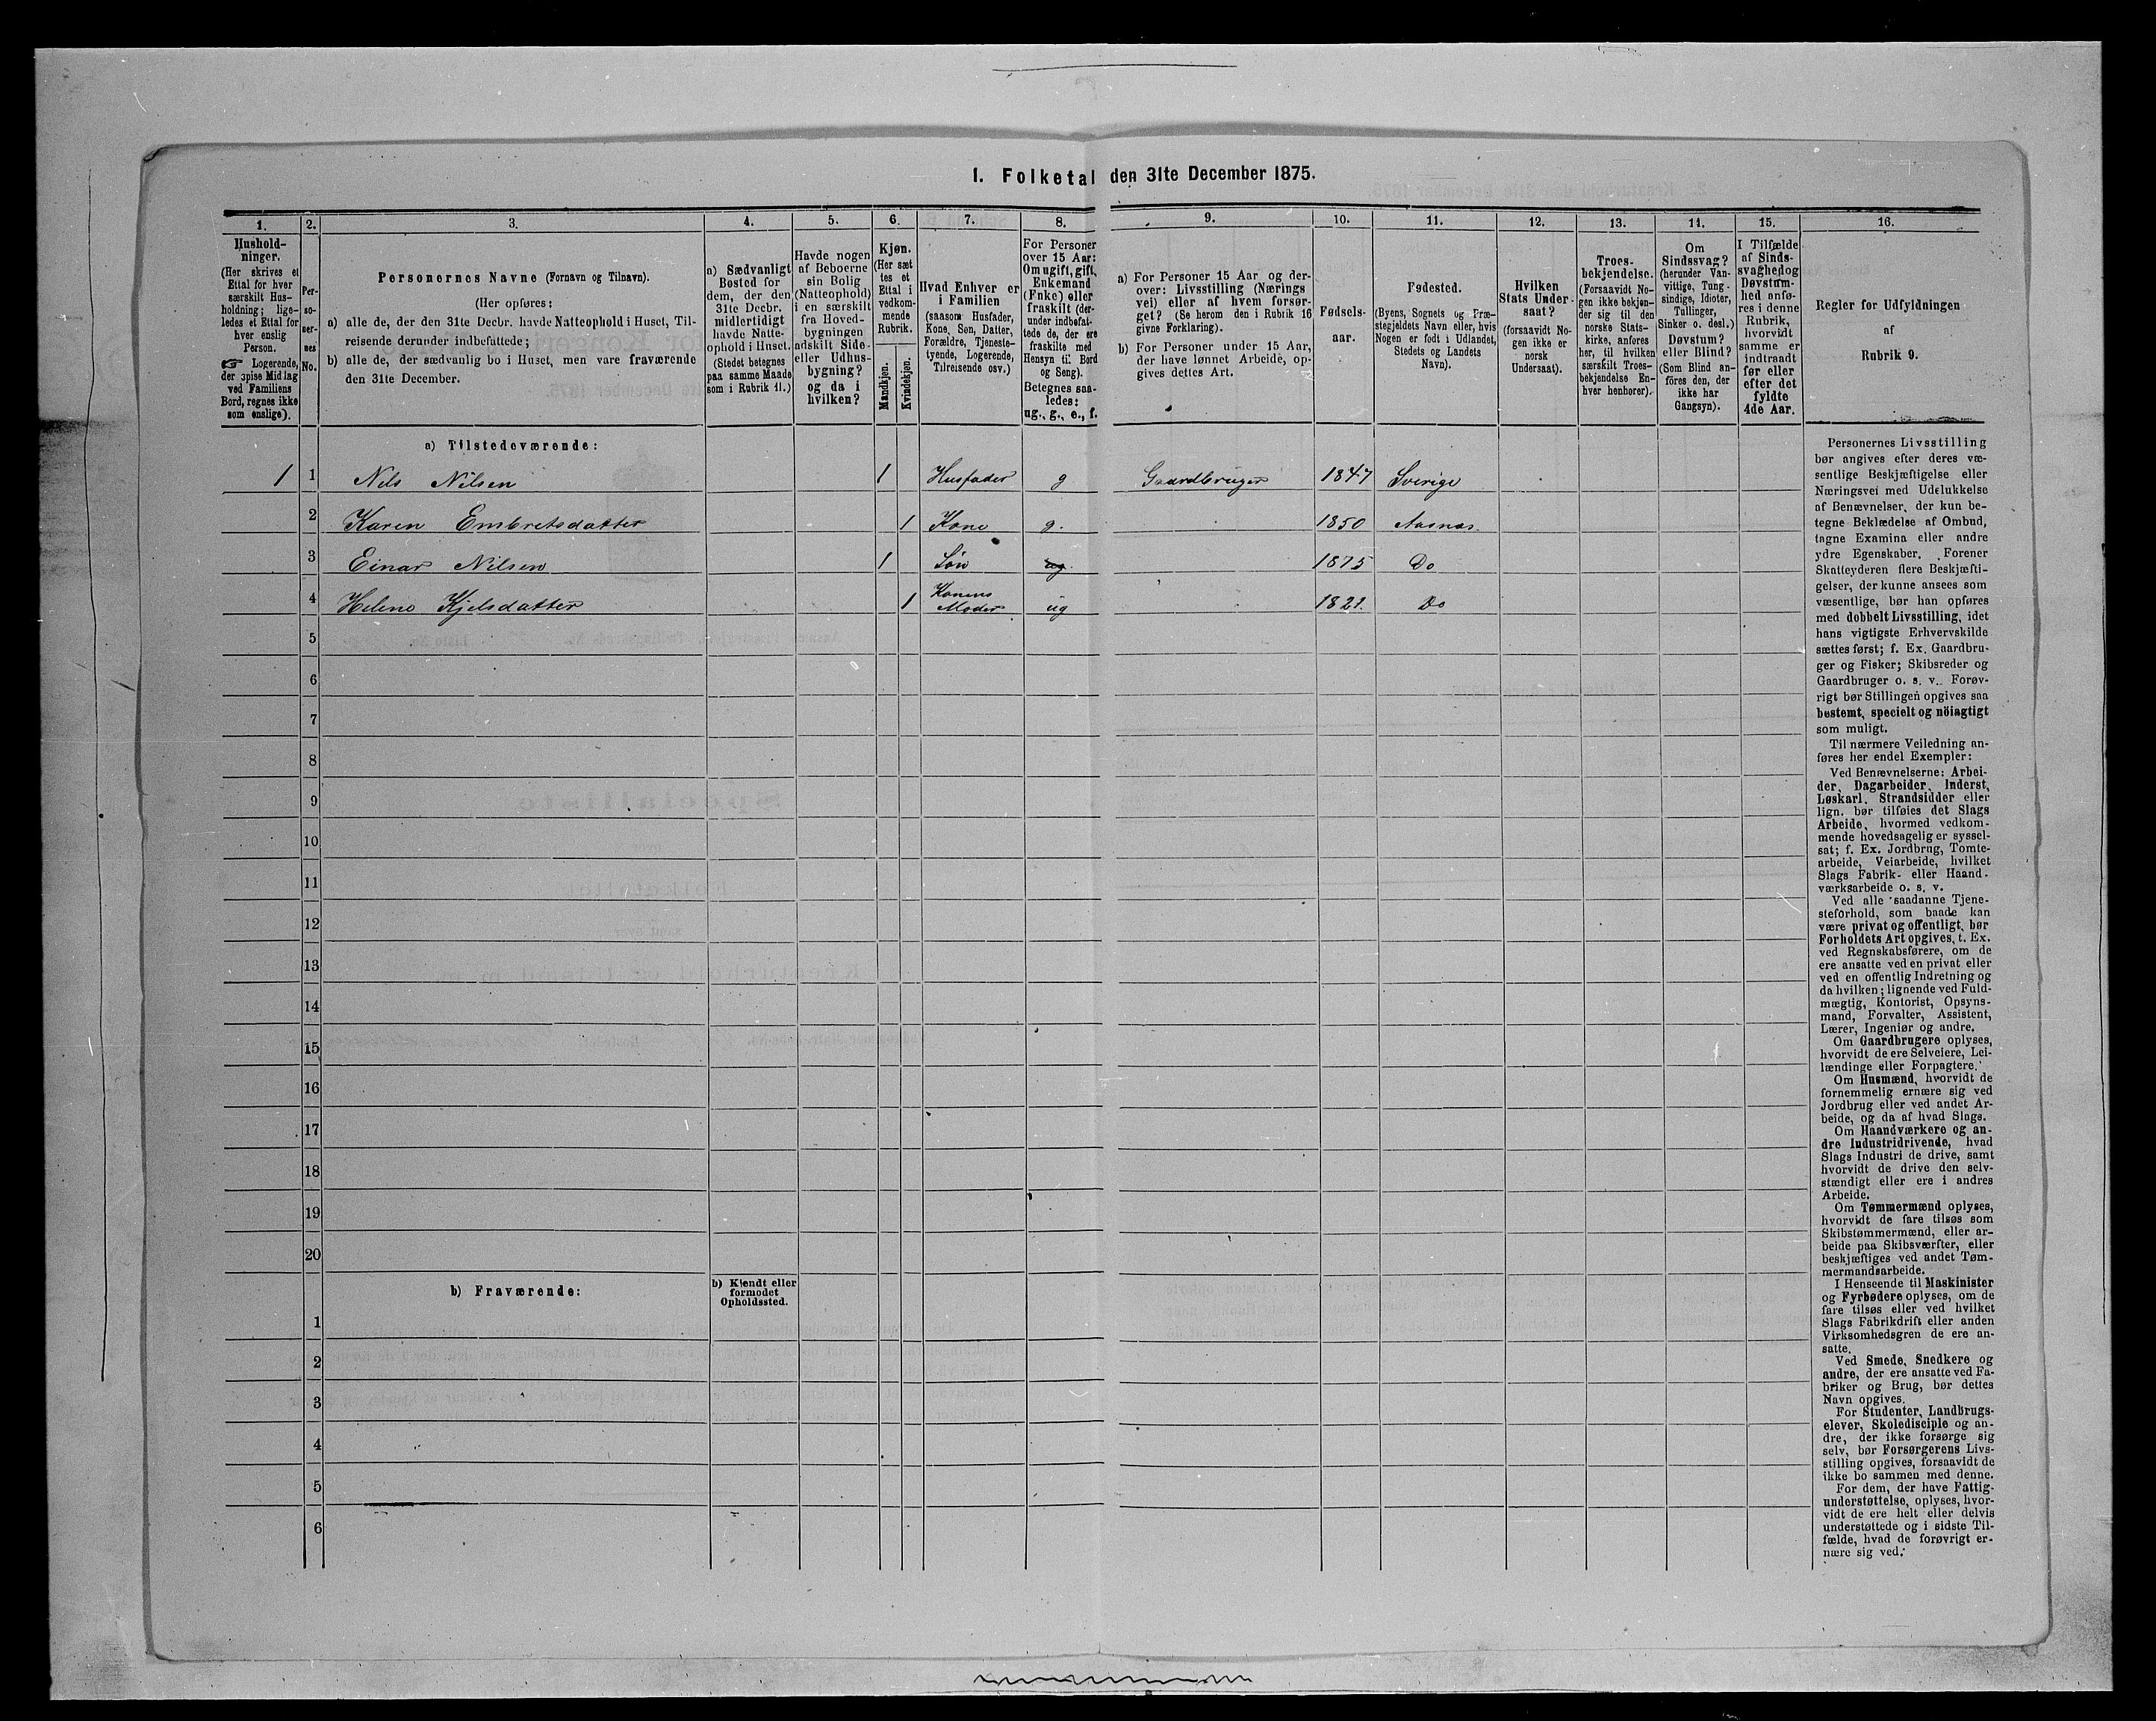 1. Folketal den 31te December 1875.
1. 2. 3. 4. 5. 6. 7. 8. 9. 10. 11. 12. 13. 14. 15. 16.
Hushold-
ninger.
(Her skrives et
Ettal for hver
særskilt Hus-
holdning; lige-
ledes et Ettal for
hver enslig
Person.
☞ Logerende,
der spise Middag
ved Familiens
Bord, regnes ikke
som enslige).
Per-
so-
ner-
nes
No.
Personernes Navne (Fornavn og Tilnavn).
(Her opføres:
a) alle de, der den 31te Decbr. havde Natteophold i Huset, Til-
reisende derunder indbefattede;
b) alle de, der sædvanlig bo i Huset, men vare fraværende
den 31te December.
a) Sædvanligt
Bosted for
dem, der den
31te Decbr.
midlertidigt
havde Natte-
ophold i Huset.
(Stedet betegnes
paa samme Maade
som i Rubrik 11.)
Havde nogen
af Beboerne
sin Bolig
(Natteophold)
i en særskilt
fra Hoved-
bygningen
adskilt Side-
eller Udhus-
bygning?
og da i
hvilken?
Kjøn.
(Her sæt
tes et
Ettal i
vedkom-
mende
Rubrik.
Mandkjøn.
Kvindekjøn.
Hvad Enhver er
i Familien
(saasom Husfader,
Kone, Søn, Datter,
Forældre, Tjeneste-
tyende, Logerende,
Tilreisende osv.)
For Personer
over 15 Aar:
Om ugift, gift,
Enkemand
(Enke) eller
fraskilt (der-
under indbefat-
tede de, der ere
fraskilte med
Hensyn til Bord
og Seng).
Betegnes saa-
ledes:
ug., g., e., f.
a) For Personer 15 Aar og der-
over: Livsstilling (Nærings
vei) eller af hvem forsør-
get? (Se herom den i Rubrik 16
givne Forklaring).
b) For Personer under 15 Aar,
der have lønnet Arbeide, op-
gives dettes Art.
Fødsels-
aar.
Fødested.
(Byens, Sognets og Præ-
stegjeldets Navn eller, hvis
Nogen er født i Udlandet,
Stedets og Landets
Navn).
Hvilken
Stats Under-
saat?
(forsaavidt No-
gen ikke er
norsk
Undersaat).
Troes-
bekjendelse.
(Forsaavidt No-
gen ikke bekjen-
der sig til den
norske Stats-
kirke, anføres
her, til hvilken
særskilt Troes-
bekjendelse En-
hver henhører).
Om
Sindssvag?
(herunder Van-
vittige, Tung-
sindige, Idioter,
Tullinger,
Sinker o. desl.)
Døvstum?
eller Blind?
(Som Blind an-
føres den, der
ikke har
Gangsyn).
I Tilfælde
af Sinds-
svaghed og
Døvstum-
hed anfø-
res i denne
Rubrik,
hvorvidt
samme er
indtraadt
før eller
efter det
fyldte
4de Aar.
Regler for Udfyldningen
af
Rubrik 9.
a) Tilstedeværende:
1 1 Nils Nilsen 1 Husfader g Gaardbruger 1847 Sverige
2 Karen Embretsdatter 1 Kone g. 1850 Aasnæs
3 Einar Nilsen 1 Søn ug 1875 Do
4 Helene Kjelsdatter 1 Konens Moder ug 1821. Do
5
6
7
8
9
10
11
12
13
14
15
16
17
18
19
20
b) Fraværende:
b) Kjendt eller
formodet
Opholdssted.
1
2
3
4
5
6
Personernes Livsstilling
bør angives efter deres væ-
sentlige Beskjæftigelse eller
Næringsvei med Udelukkelse
af Benævnelser, der kun be-
tegne Beklædelse af Ombud,
tagne Examina eller andre
ydre Egenskaber. Forener
Skatteyderen flere Beskjæfti-
gelser, der kunne ansees som
væsentlige, bør han opføres
med dobbelt Livsstilling, idet
hans vigtigste Erhvervskilde
sættes først; f. Ex. Gaardbru-
ger og Fisker; Skibsreder og
Gaardbruger o. s. v. Forøv-
rigt bør Stillingen opgives saa
bestemt, specielt og nöiagtigt
som muligt.
Til nærmere Veiledning an-
føres her endel Exempler:
Ved Benævnelserne: Arbei-
der, Dagarbeider, Inderst,
Løskarl, Strandsidder eller
lign. bør tilføies det Slags
Arbeide, hvormed vedkom-
mende hovedsagelig er syssel-
sat; f. Ex. Jordbrug, Tomte-
arbeide, Veiarbeide, hvilket
Slags Fabrik- eller Haand-
værksarbeide o. s. v.
Ved alle saadanne Tjene-
steforhold, som baade kan
være privat og offentligt, bør
Forholdets Art opgives, t. Ex.
ved Regnskabsførere, om de
ere ansatte ved en privat eller
ved en offentlig Indretning og
da hvilken; lignende ved Fuld-
mægtig, Kontorist, Opsyns-
mand, Forvalter, Assistent,
Lærer, Ingeniør og andre.
Om Gaardbrugere oplyses,
hvorvidt de ere Selveiere, Lei-
lændinge eller Forpagtere.
Om Husmænd, hvorvidt de
fornemmelig ernære sig ved
Jordbrug eller ved andet Ar-
beide, og da af hvad Slags.
Om Haandværkere og an-
dre Industridrivende, hvad
Slags Industri de drive, samt
hvorvidt de drive den selv-
stændigt eller ere i andres
Arbeide.
Om Tømmermænd oplyses,
hvorvidt de fare tilsøs som
Skibstømmermænd, eller ar-
beide paa Skibsværfter, eller
beskjæftiges ved andet Tøm-
mermandsarbeide.
I Henseende til Maskinister
og Fyrbødere oplyses, om de
fare tilsøs eller ved hvilket
Slags Fabrikdrift eller anden
Virksomhedsgren de ere an-
satte.
Ved Smede, Snedkere og
andre, der ere ansatte ved Fa-
briker og Brug, bør dettes
Navn opgives.
For Studenter, Landbrugs-
elever, Skoledisciple og an-
dre, der ikke forsørge sig
selv, bør Forsørgerens Livs-
stilling opgives, forsaavidt de
ikke bo sammen med denne.
For dem, der have Fattig-
understøttelse, oplyses, hvor-
vidt de ere helt eller delvis
understøttede og i sidste Til-
fælde, hvad de forøvrigt er-
nære sig ved.